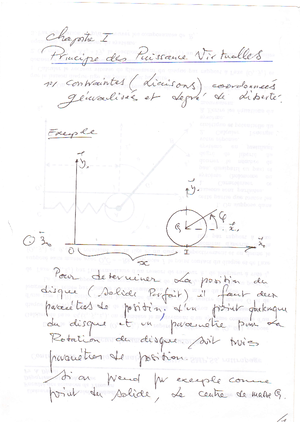 Chapitre I
Principe des Puissance Virtuelles
1) contraintes (Liaisons) coordonnées
généralisées et degré de liberté.
Exemple
y₀
y₁
G φ
x₁
z₀ O I x₀
x
Pour determiner la position du
disque (Solide Parfait) il faut deux
paramètres de position d'un point quelconque
du disque et un paramètre pour la
Rotation du disque soit trois
paramètres de position.
Si on prend par exemple comme
point du Solide, le centre de masse G.